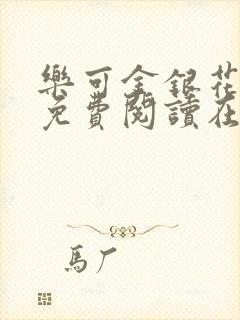 樂可金銀花
免費閱讀在
馬厂